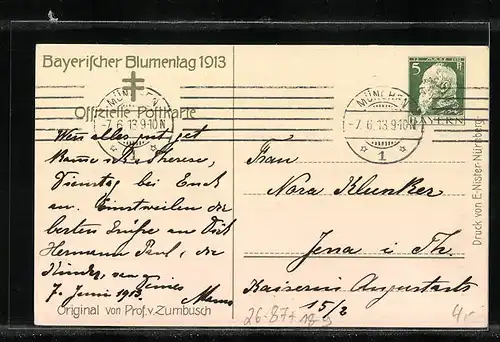 Bayerischer Blumentag 1913
Offizielle Postkarte
MÜNCHEN
-7.6.13.9-10N.
1
MÜNCHEN
-7.6.13.9-10N.
1
5 Pf
BAYERN
Wenn alles gut geht
komme ich, Therese,
Dienstag bei Euch
an. Einstweilen die
besten Grüße an Dich
Hermann Paul, die
Kinder, von
7. Juni 1913. Mama
Original von Prof. v. Zumbusch
Frau
Nora Klunker
Jena i. Th.
Kaiserin Augustastr
15/2
Druck von E. Nister Nürnberg
26-87+